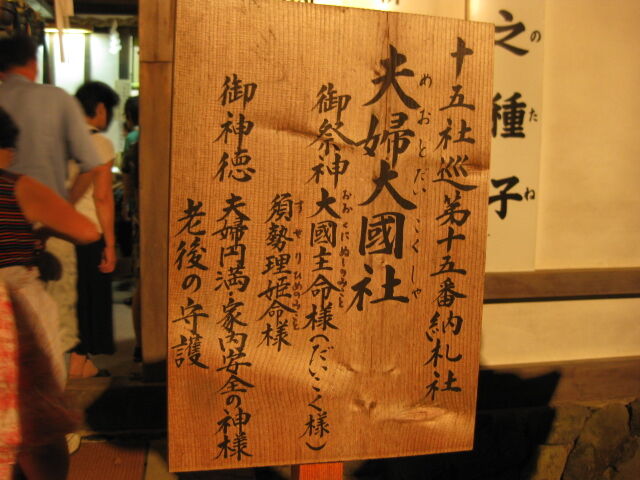 之種子
のたね
十五社巡第十五番納札社
夫婦大國社
めおとだいこくしゃ
御祭神 大國主命様(だいこく様)
おおくにぬしのみこと
須勢理姫命様
すせりひめのみこと
御神徳 夫婦円満家内安全の神様
老後の守護